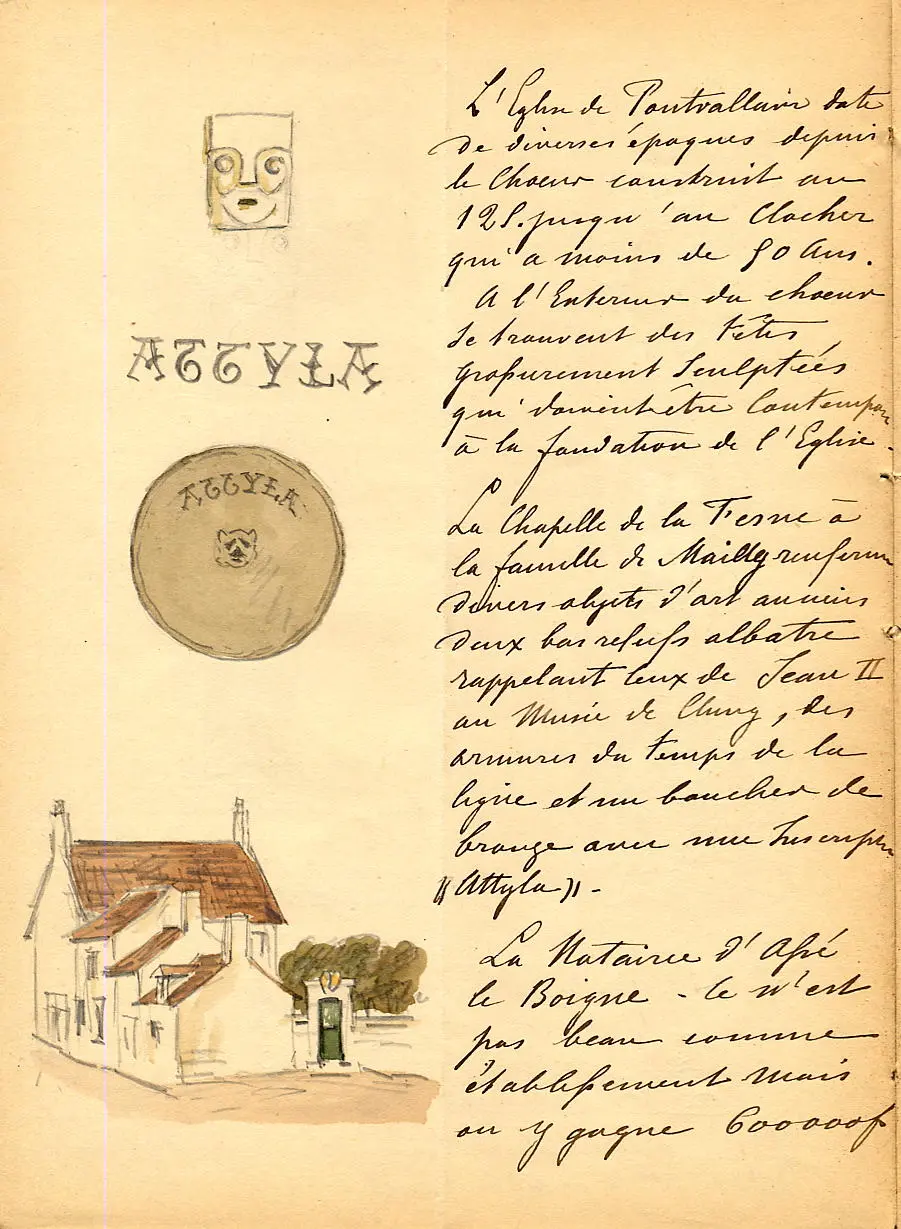 ATTYLA
ATTYLA
L'Eglise de Pontvallain date
de diverses époques depuis
le Choeur construit au
12 S. jusqu'au Clocher
qui a moins de 50 Ans.
A l'Exterieur du choeur
se trouvent des Têtes
grossierement Sculptées
qui doivent être Contempor
à la fondation de l'Eglise.
La Chapelle de la Fesne à
la famille de Mailly renferme
divers objets d'art anciens
deux bas reliefs albatre
rappelant ceux de Jean II
au Musée de Cluny, des
armures du temps de la
ligue et un bouclier de
bronze avec une Inscription
"Attyla" -
La Notairie d'
le Boigne - Ce n'est
pas beau comme
établissement mais
on y gagne 600000f